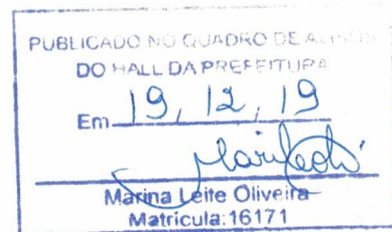 PUBLICADO NO QUADRO DE AVISOS
DO HALL DA PREFEITURA
Em 19, 12, 19
Marina Leite Oliveira
Matricula:16171